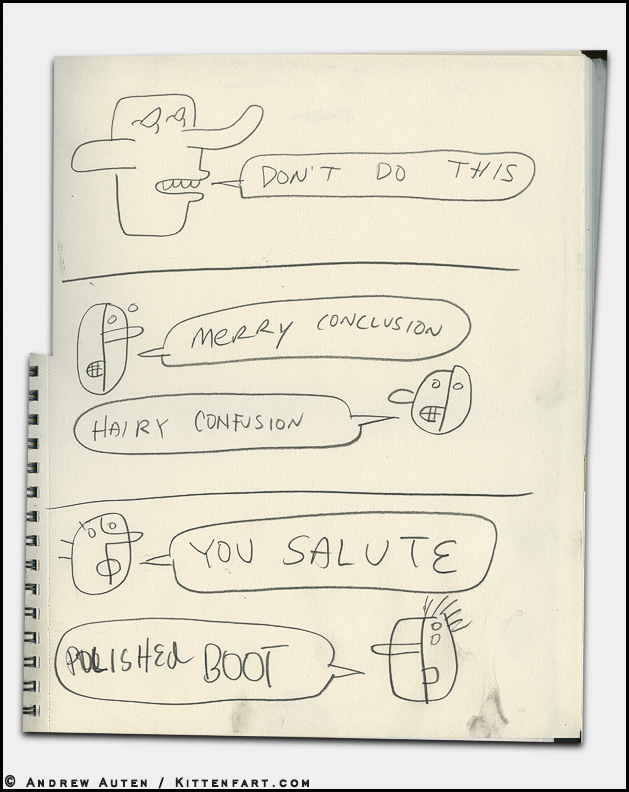 DON'T DO THIS
MERRY CONCLUSION
HAIRY CONFUSION
YOU SALUTE
POLISHED BOOT
© ANDREW AUTEN / KITTENFART.COM